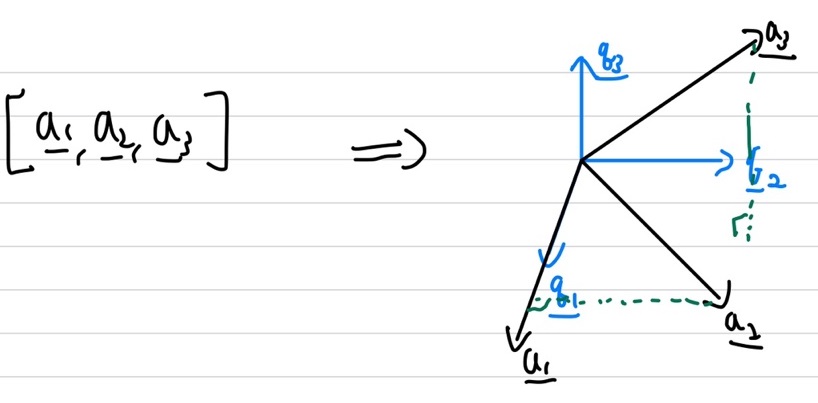 [a1, a2, a3] ⟹
q3
a3
q2
q1
a2
a1